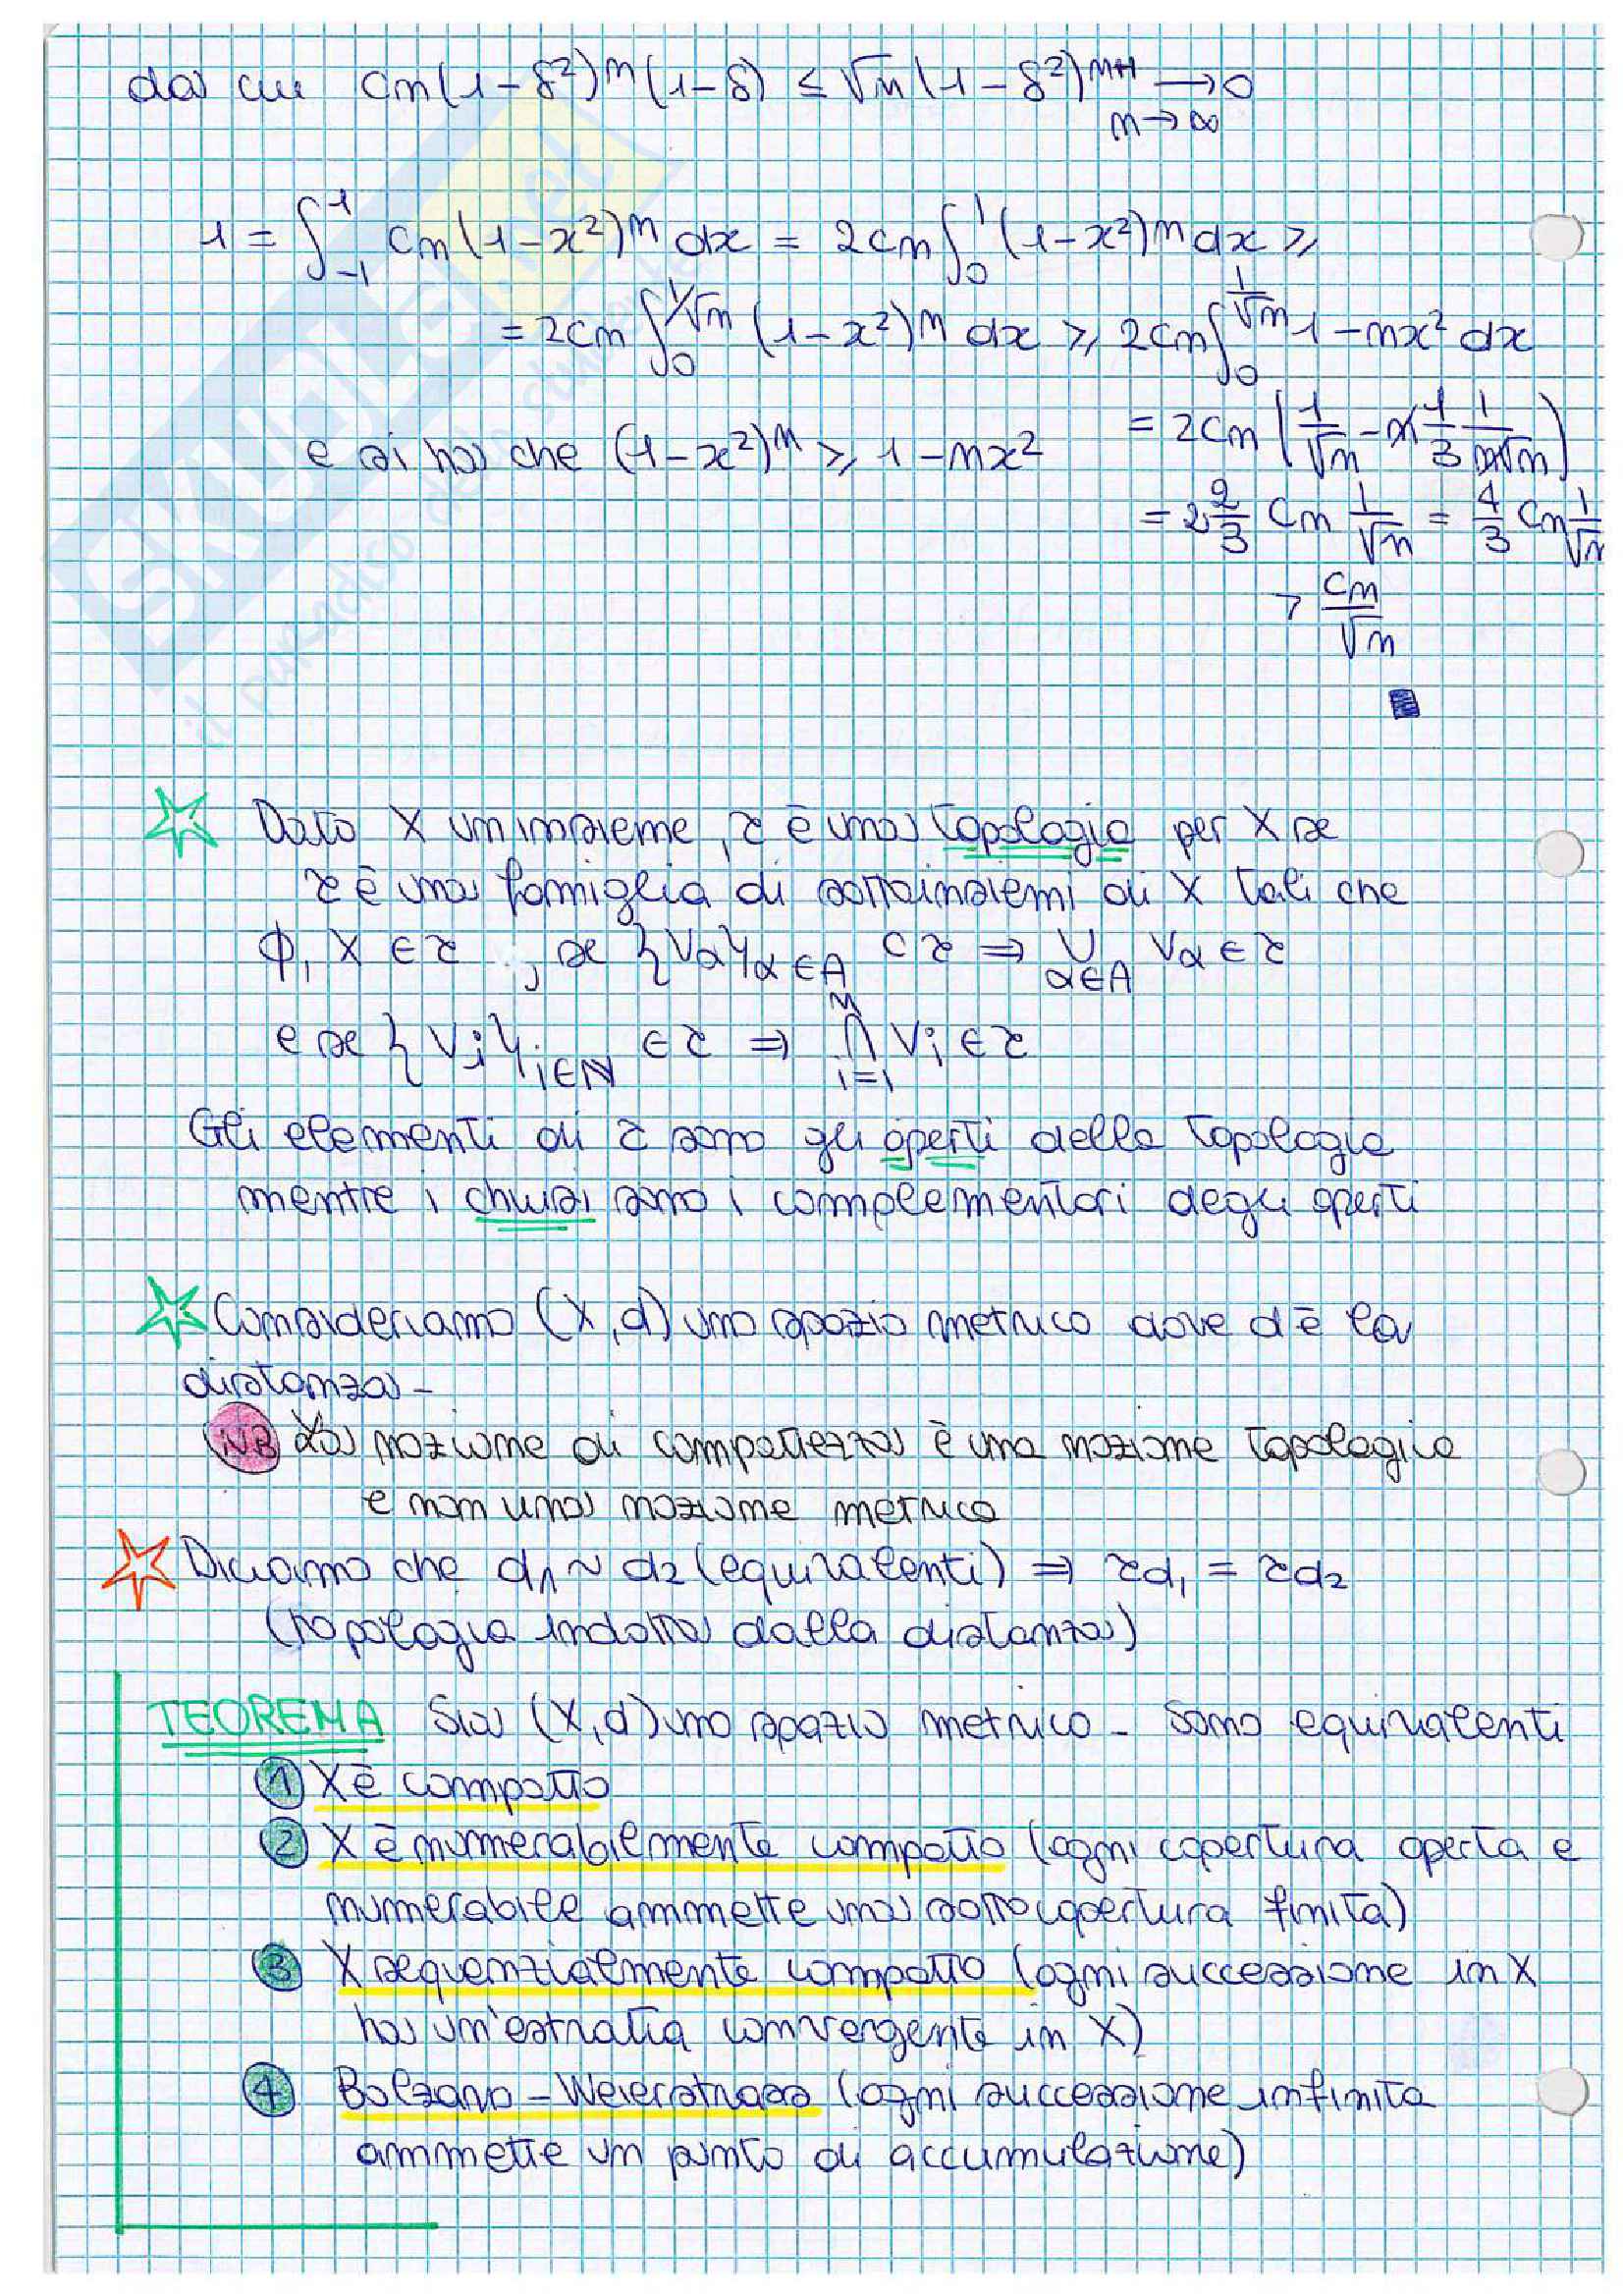 da cui Cn(1-δ²)ⁿ(1-δ) ≤ √n(1-δ²)ⁿ⁺¹ → 0
n→∞
1 = ∫₋₁¹ Cn(1-x²)ⁿ dx = 2Cn ∫₀¹ (1-x²)ⁿ dx ≥
= 2Cn ∫₀^{1/√n} (1-x²)ⁿ dx ≥ 2Cn ∫₀^{1/√n} 1-nx² dx
e si ha che (1-x²)ⁿ ≥ 1-nx² = 2Cn (1/√n - n 1/3 1/(n√n))
= 2 2/3 Cn 1/√n = 4/3 Cn 1/√n
> Cn/√n
Dato X un insieme, τ è una topologia per X se
τ è una famiglia di sottoinsiemi di X tali che
∅, X ∈ τ ; se {Vα}α∈A ⊂ τ ⇒ ∪α∈A Vα ∈ τ
e se {Vi}i∈N ∈ τ ⇒ ∩ᵢ₌₁ᴺ Vi ∈ τ
Gli elementi di τ sono gli aperti della topologia
mentre i chiusi sono i complementari degli aperti
Consideriamo (X,d) uno spazio metrico dove d è la
distanza-
NB La nozione di compattezza è una nozione topologica
e non una nozione metrica
Diciamo che d₁ ~ d₂ (equivalenti) ⇒ τd₁ = τd₂
(topologia indotta dalla distanza)
TEOREMA Sia (X,d) uno spazio metrico - Sono equivalenti
1 X è compatto
2 X è numerabilmente compatto (ogni copertura aperta e
numerabile ammette una sottocopertura finita)
3 X sequenzialmente compatto (ogni successione in X
ha un'estratta convergente in X)
4 Bolzano-Weierstrass (ogni successione infinita
ammette un punto di accumulazione)